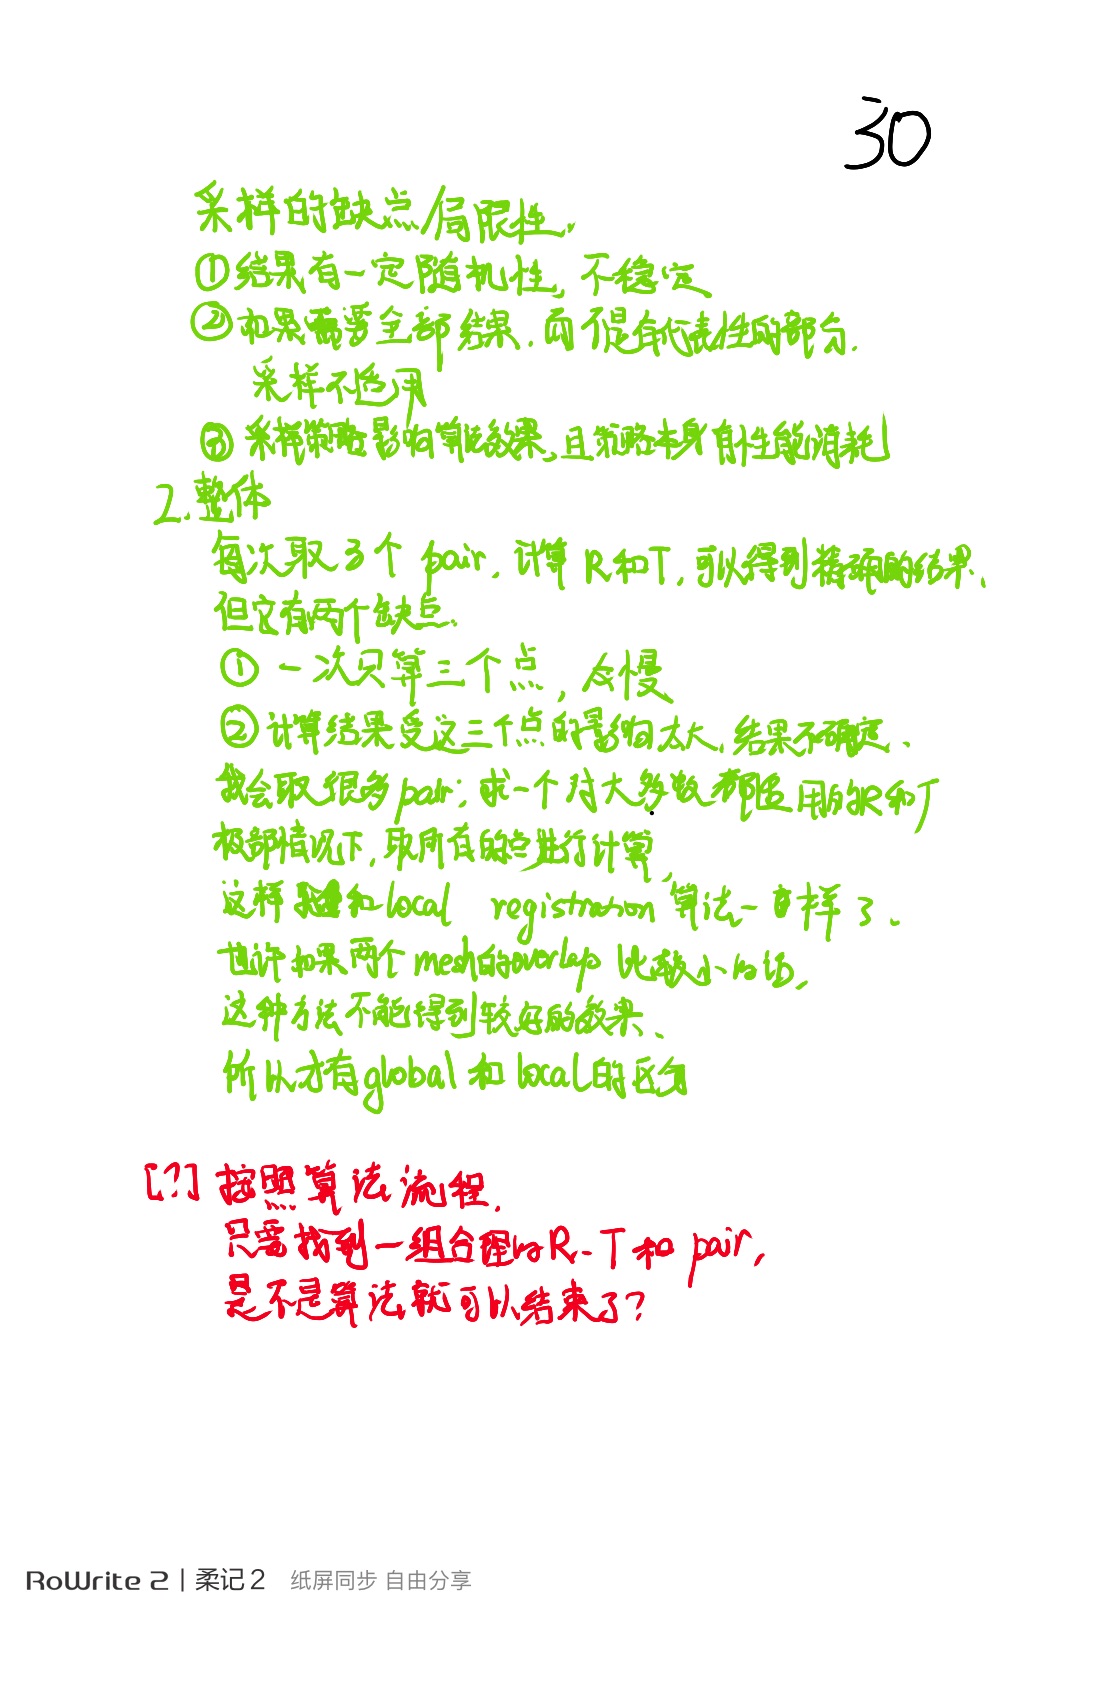 30
采样的缺点/局限性.
①结果有一定随机性,不稳定
②如果需要全部结果.而不是有代表性的部分.
采样不适用
③采样策略影响算法效果,且策略本身有性能消耗
2.整体
每次取3个pair.计算R和T,可以得到精确的结果.
但它有两个缺点.
①一次只算三个点,太慢
②计算结果受这三个点的影响太大,结果不确定.
我会取很多pair;求一个对大多数都适用的R和T
极部情况下,取所有的点进行计算,
这样和local registration算法一样了.
也许如果两个mesh的overlap比较小的话,
这种方法不能得到较好的效果.
所以才有global和local的区分
[?]按照算法流程,
只需找到一组合理的R-T和pair,
是不是算法就可以结束了?
RoWrite 2 | 柔记2 纸屏同步 自由分享